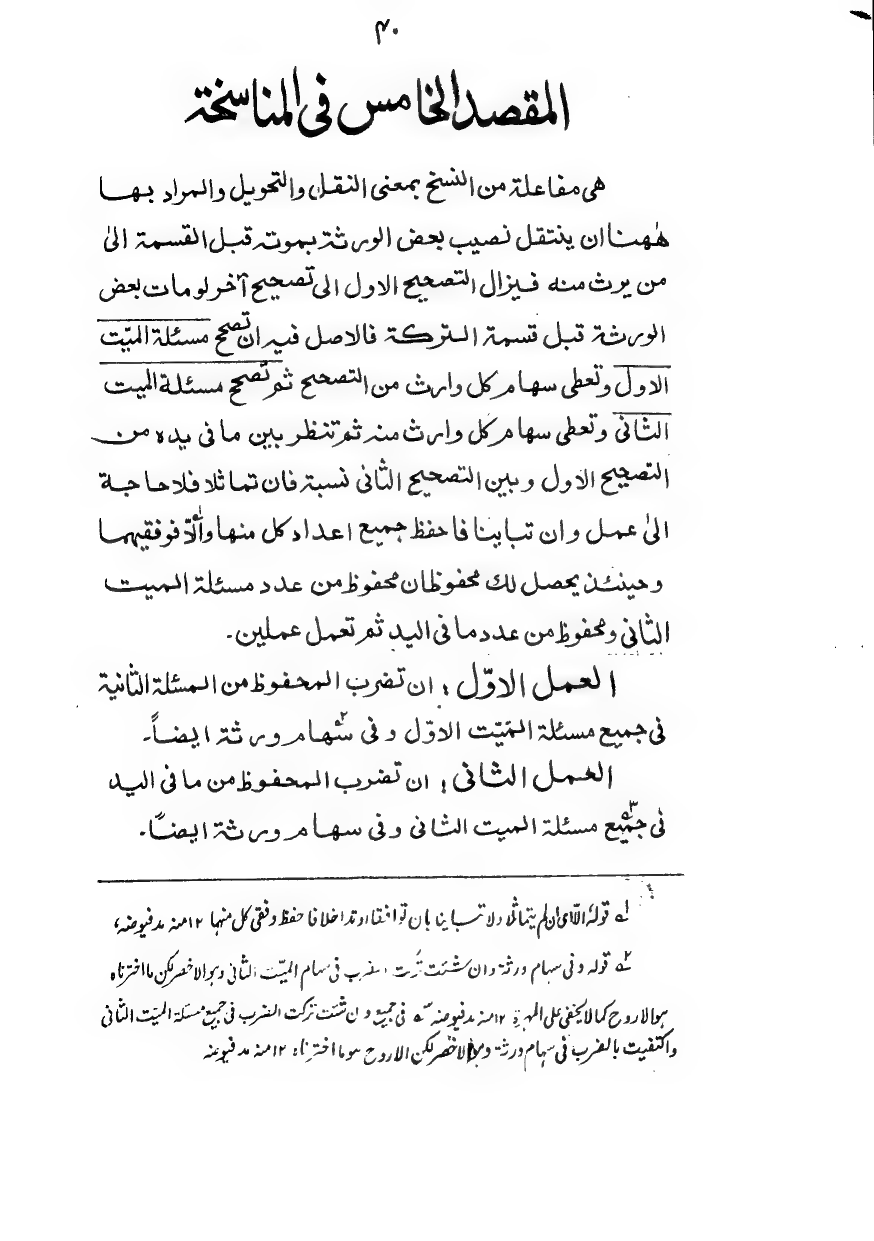 ۴۰
المقصد الخامس فی المناسخة
هی مفاعلة من النسخ بمعنی النقل والتحویل والمراد بها
هٰهنا ان ینتقل نصیب بعض الورثة بموته قبل القسمة الیٰ
من یرث منه فیزال التصحیح الاول الی تصحیح آخر لو مات بعض
الورثة قبل قسمة الترکة فالاصل فیه ان تصحح مسئلة المیّت
الاول وتعطی سهام کل وارث من التصحیح ثم تصحح مسئلة المیت
الثانی وتعطی سهام کل وارث منه ثم تنظر بین ما فی یده من
التصحیح الاول وبین التصحیح الثانی نسبة فان تماثلا فلا حاجة
الیٰ عمل وان تباینا فاحفظ جمیع اعداد کل منها والّا فوفقیهما
وحینئذ یحصل لك محفوظان محفوظ من عدد مسئلة المیت
الثانی ومحفوظ من عدد ما فی الید ثم تعمل عملین۔
العمل الاوّل : ان تضرب المحفوظ من المسئلة الثانیة
فی جمیع مسئلة المیّت الاوّل وفی سهام ورثة ایضاً۔
العمل الثانی : ان تضرب المحفوظ من ما فی الید
فی جمیع مسئلة المیت الثانی وفی سهام ورثة ایضًا۔
۱ قوله الّا ای ان لم یتماثلا ولا تباینا بان توافقا او تداخلا فاحفظ وفقی کل منها ۱۲ منه مد فیوضه،
۲ قوله وفی سهام ورثة وان شئت ترکت الضرب فی سهام المیّت الثانی وهو الاخصر لکن ما اخترناه
هو الاروح کما لا یخفی علی المهرة ۱۲ منه مد فیوضه ۳ فی جمیع وان شئت ترکت الضرب فی جمیع مسئلة المیّت الثانی
واکتفیت بالضرب فی سهام ورثة وهو الاخصر لکن الاروح هو ما اخترناه ۱۲ منه مد فیوضه